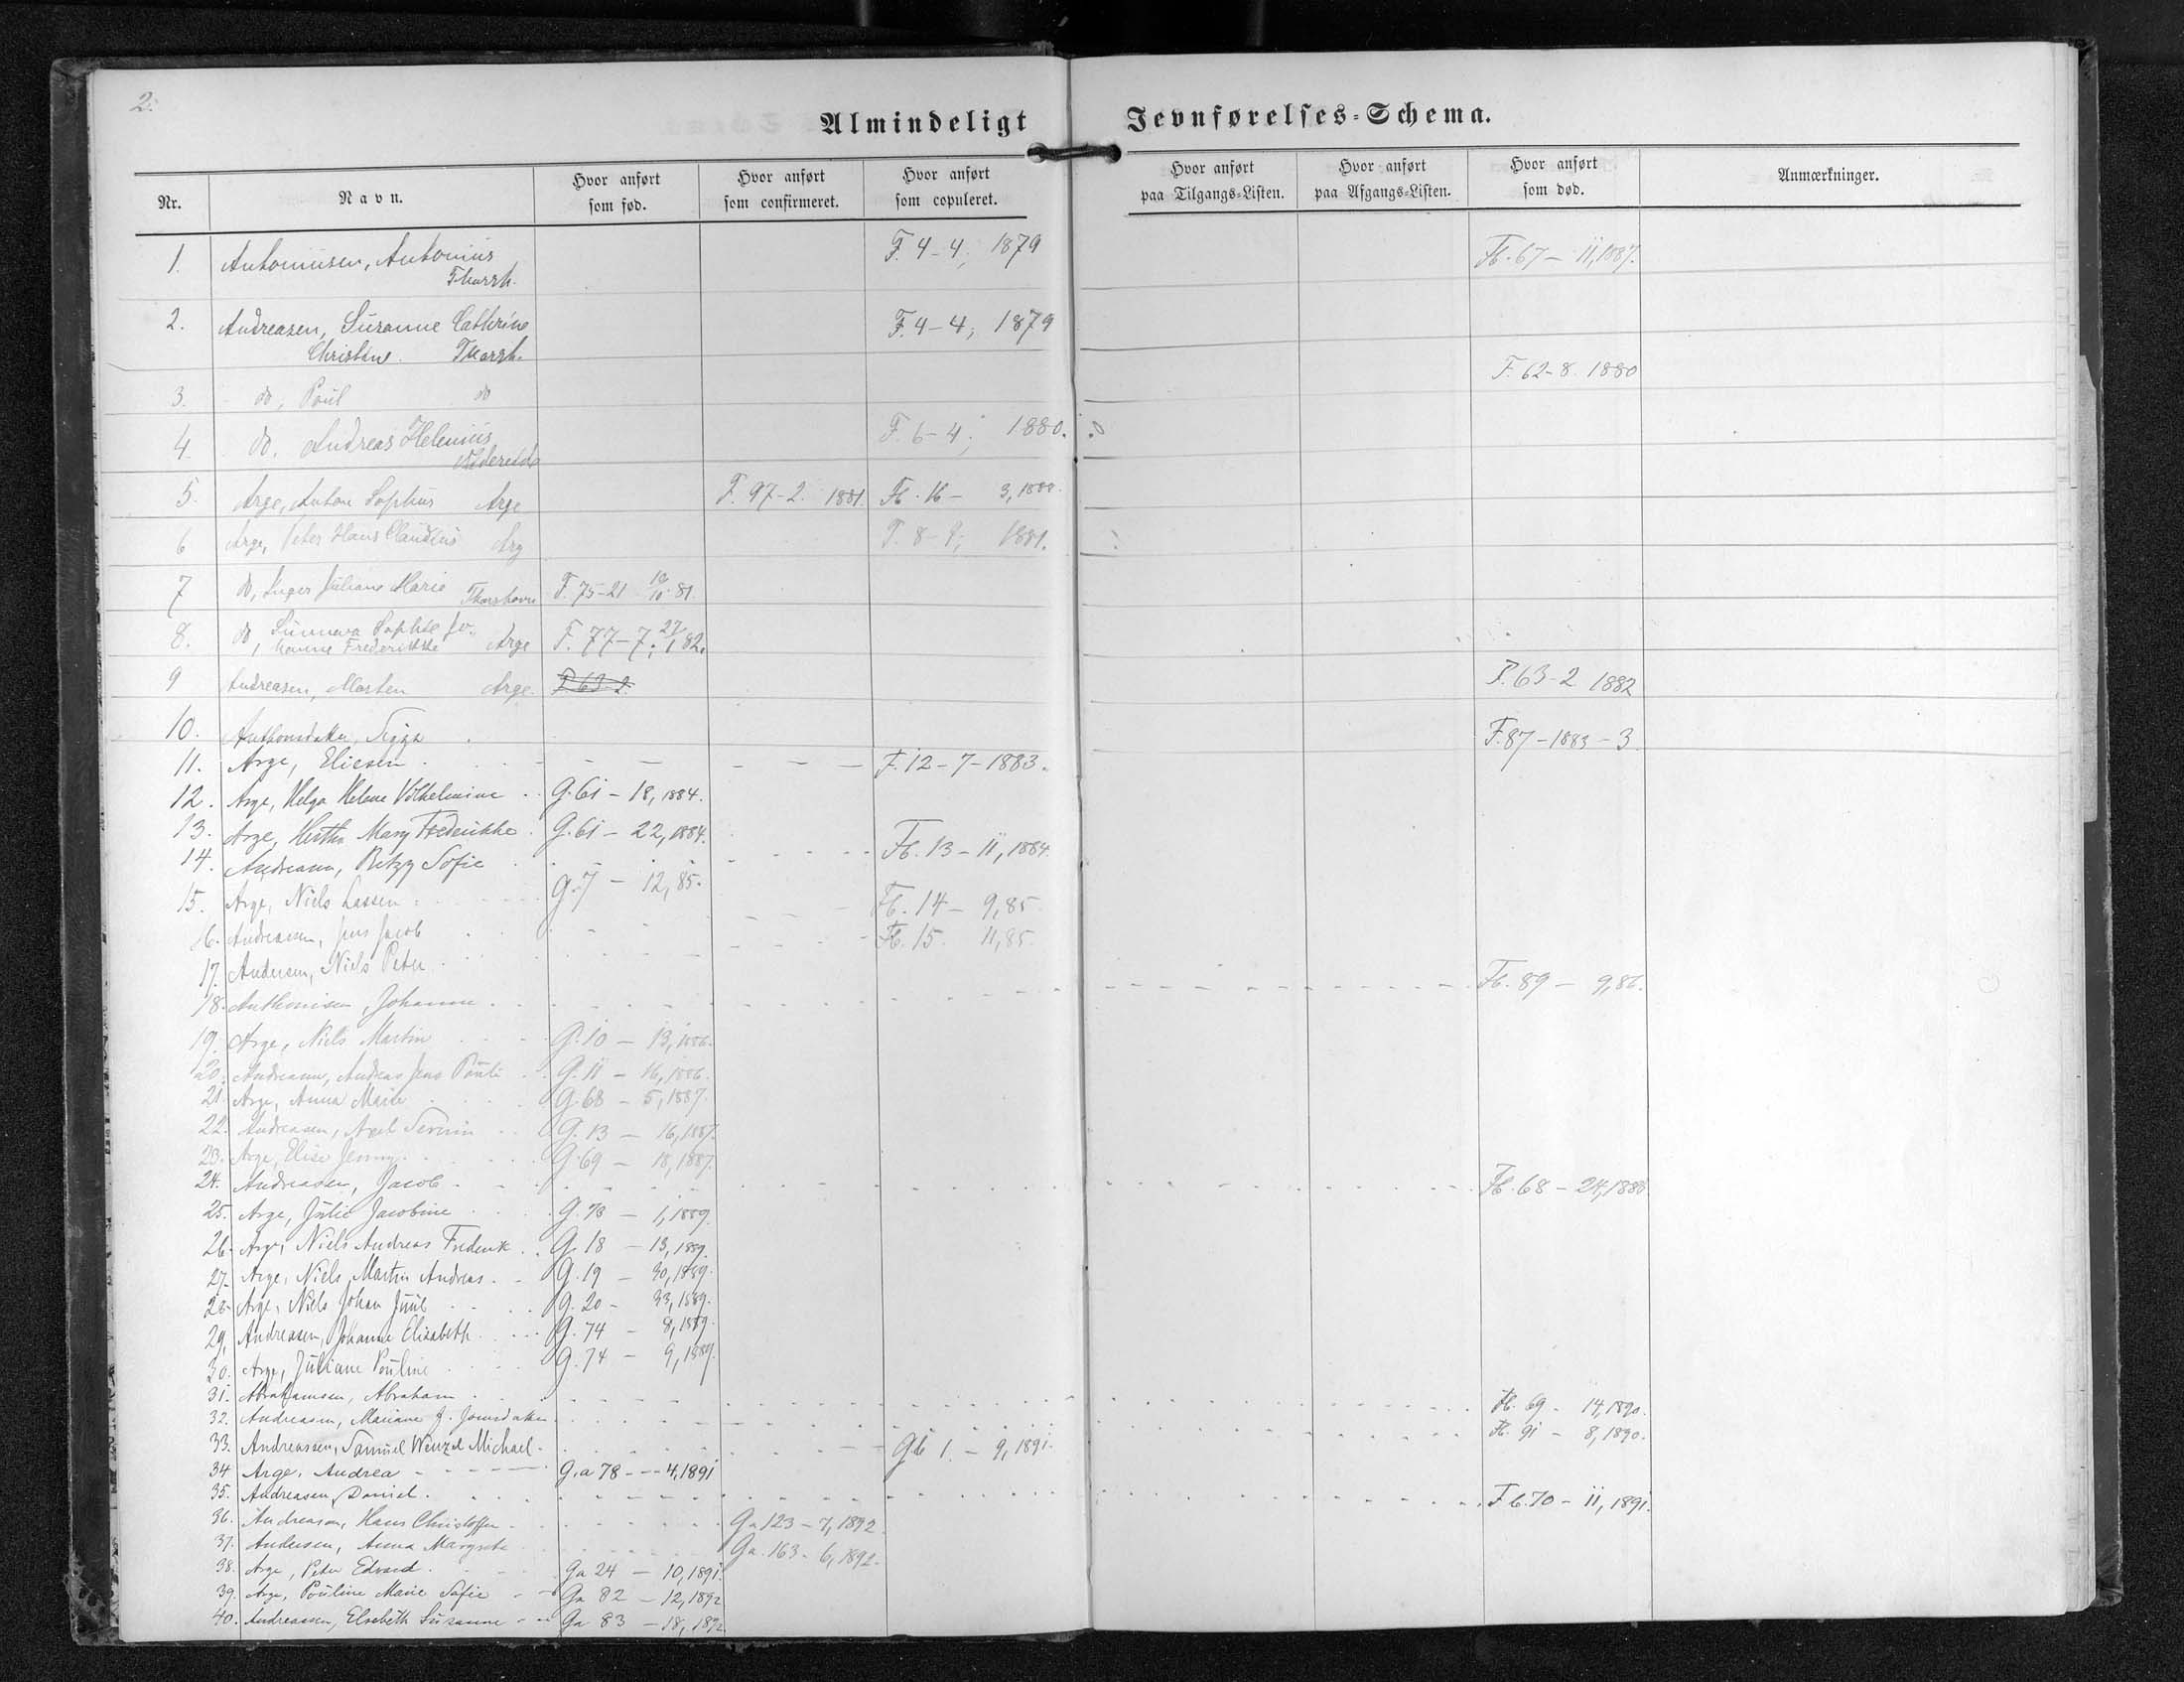 2.
Almindeligt Jevnførelses-Schema.
Nr. Navn. Hvor anført som fød. Hvor anført som confirmeret. Hvor anført som copuleret. Hvor anført paa Tilgangs-Listen. Hvor anført paa Afgangs-Listen. Hvor anført som død. Anmærkninger.
1. Antoniusen, Antonius F. 4-4; 1879 Fb. 67 - 11, 1887.
Thorsh.
2. Andreasen, Susanne Cathrine F. 4-4; 1879
Christine. Thorsh.
3. do, Poul do F. 62-8 1880
4 do. Andreas Helenius F. 6-4; 1880.
5. Arge, Anton Sophus Arge F. 97-2. 1881 Fb. 16 - 3, 1888.
6 Arge, Peter Hans Claudius Arg 1881.
7 do, Inger Juliane Marie Thorshavn F. 75-21 81
8. do, Sunneva Sophie Jo- Arge F. 77-7; 27/1 82.
hanne Frederikke
9 Andreasen, Morten Arge. F. 63-2 F. 63-2 1882
10. Anthonsdatter, Sigga F. 87-1883-3
11. Arge, Eliesen F. 12-7-1883.
12. Arge, Helga Helene Vilhelmine G. 61 - 18, 1884.
13. Arge, Hertha Mary Frederikke. G. 61 - 22, 1884.
14. Andreasen, Betzy Sofie Fb. 13 - 11, 1884.
15. Arge, Niels Lassen G. 7 - 12, 85.
16. Andreasen, Jens Jacob Fb. 14 - 9, 85
17. Andersen, Niels Peter Fb. 15. 11, 85.
18. Anthonisen, Johanne Fb. 89 - 9, 86.
19. Arge, Niels Martin G. 10 - 13, 1886.
20. Andreasen, Andreas Jens Pouli G. 11 - 16, 1886.
21. Arge, Anna Marie G. 68 - 5, 1887.
22. Andreasen, Axel Severin G. 13 - 16, 1887.
23. Arge, Elise Jenny. G. 69 - 18, 1887.
24. Andreasen, Jacob Fb. 68 - 24, 1888
25. Arge, Julie Jacobine G. 73 - 1, 1889.
26. Arge, Niels Andreas Frederik G. 18 - 13, 1889.
27. Arge, Niels Martin Andreas G. 19 - 30, 1889.
28. Arge, Niels Johan Juul G. 20 - 33, 1889.
29. Andreasen, Johanne Elisabeth G. 74 - 8, 1889.
30. Arge, Juliane Pouline G. 74 - 9, 1889.
31. Abrahamsen, Abraham Fb. 69 - 14, 1890.
32. Andreasen, Mariane f. Joensdatter Fb. 91 - 8, 1890.
33. Andreassen, Samuel Wenzel Michael Gb 1. - 9, 1891.
34 Arge, Andrea G. a 78 - 4, 1891
35. Andreasen, Daniel. Fb. 70 - 11, 1891.
36. Andreasen, Hans Christoffer Ga 123 - 7, 1892
37. Andersen, Anna Margrete Ga. 163 - 6, 1892.
38. Arge, Peter Edvard Ga 24 - 10, 1891.
39. Arge, Pouline Marie Sofie Ga 82 - 12, 1892
40. Andreassen, Elsebeth Susanne Ga 83 - 18, 1892